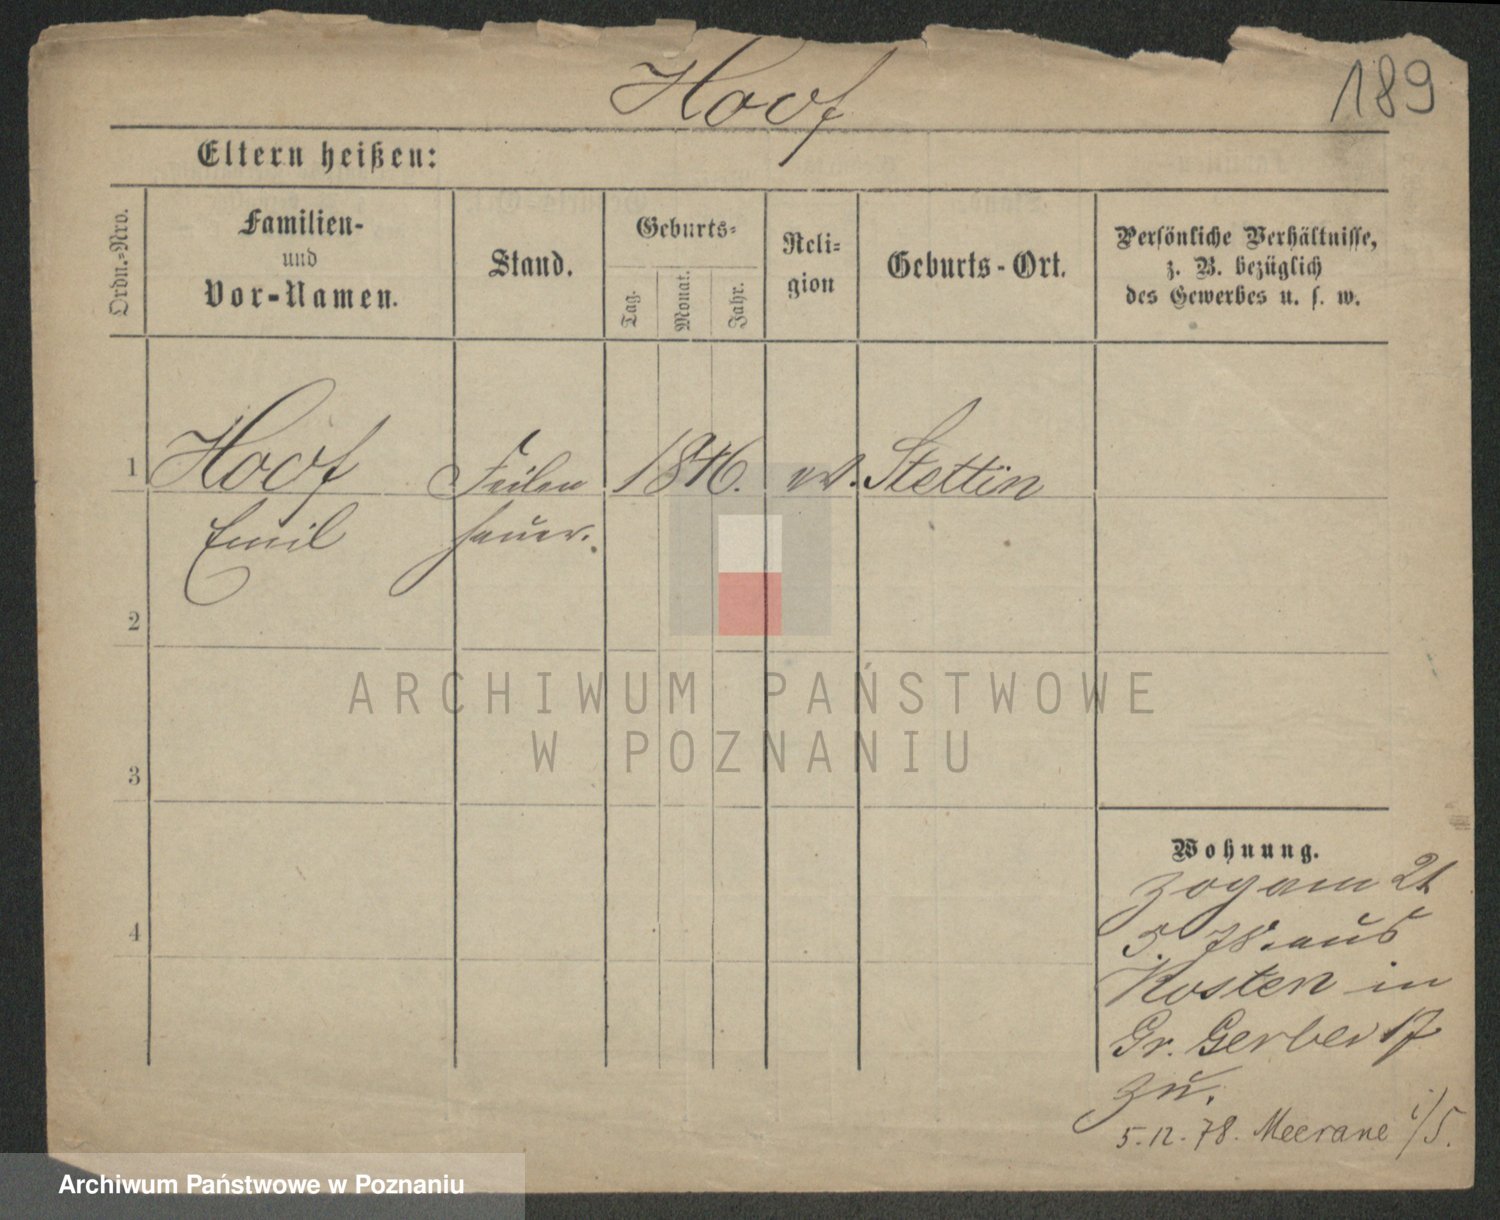 Hoof
189
Eltern heißen:
Ordn.-Nro.
Familien-
und
Vor-Namen.
Stand.
Geburts-
Tag.
Monat.
Jahr.
Reli-
gion
Geburts-Ort.
Persönliche Verhältnisse,
z. B. bezüglich
des Gewerbes u. s. w.
1 Hoof Feilen 1846. ev. Stettin
Emil hauer.
2
3
4
Wohnung.
Zog am 21
5. 78. aus
Kosten in
Gr. Gerber 17
zu.
5.12.78. Meerane i/S.
ARCHIWUM PAŃSTWOWE
W POZNANIU
Archiwum Państwowe w Poznaniu